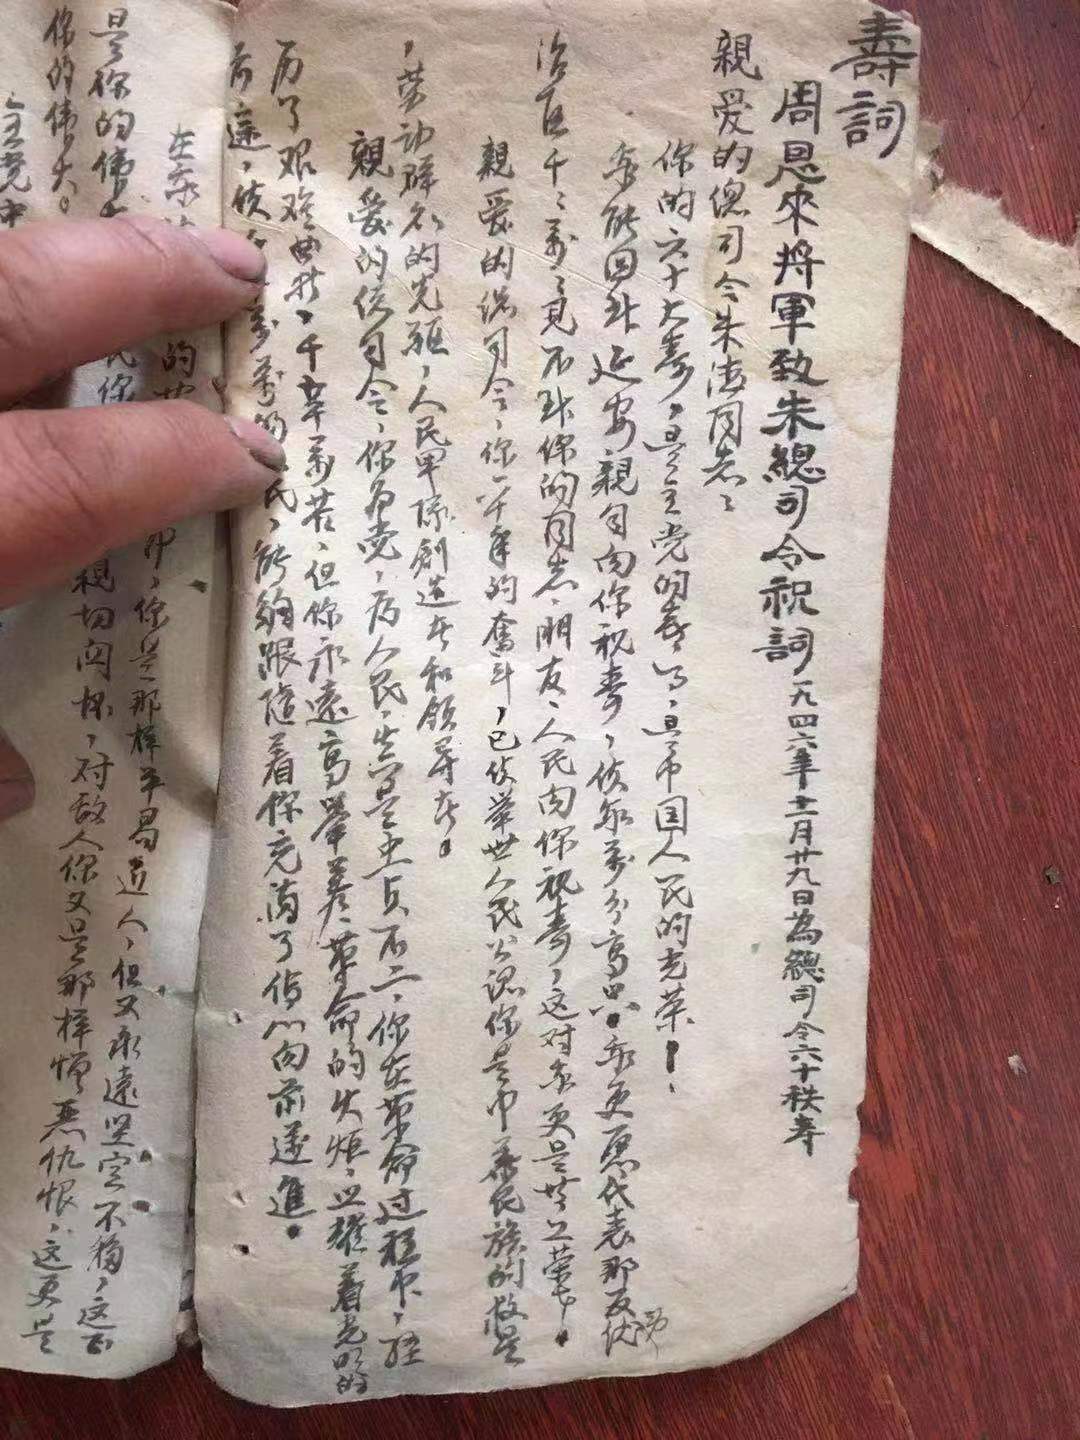 壽詞
周恩來將軍致朱總司令祝詞 一九四六年十一月廿九日為總司令六十秩寿
親爱的總司令朱德同志：
你的六十大寿，是全党的喜了，是中国人民的光荣！
我能回到延安親自向你祝寿，使我萬分高興。我更愿代表那反动
治区千千萬萬見不到你的同志、朋友、人民向你祝寿，这对我更是世上荣幸。
親爱的總司令，你 年的奮斗，已使举世人民公認你是中華民族的救星
，劳动群众的先驱，人民軍隊創造者和領导者。
親爱的總司令，你为党，为人民，真是忠貞不二，你在革命过程中，经
历了艰难曲折，千辛萬苦，但你永遠高舉着革命的火炬，照耀着光明的
前途，使 萬萬的 民，能夠跟隨着你充滿了信心向前邁進。
在我 的 中，你是那样平易近人，但又永遠坚定不移，这正
是你的偉大。 民你 親切関怀，对敌人你又是那样憎恶仇恨，这更是
你的偉大。
全党中